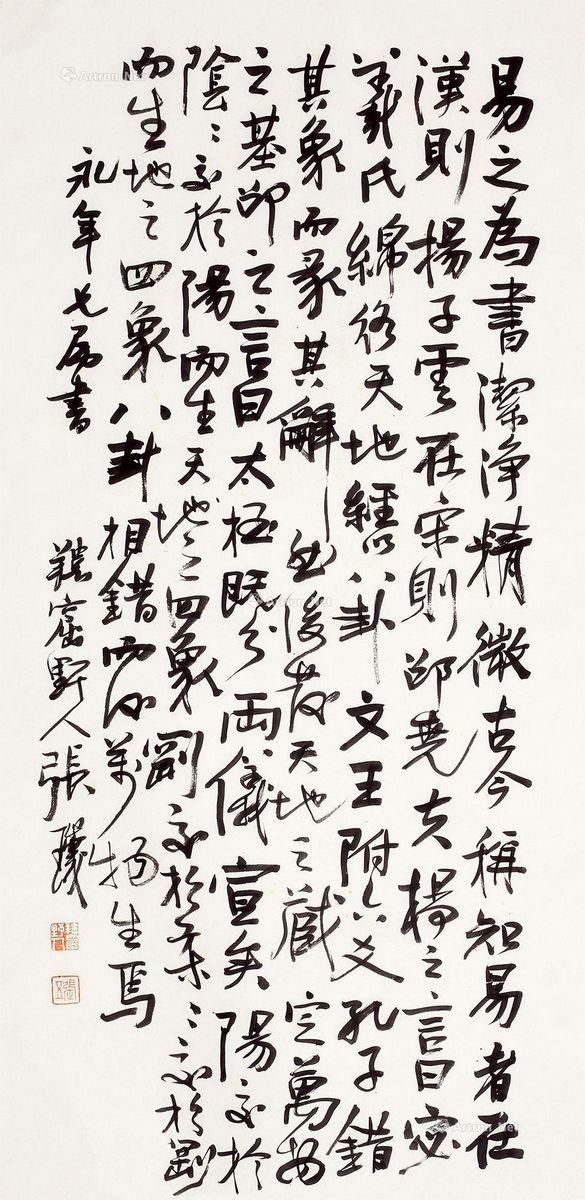 易之為書潔净精微古今稱知易者在
漢則揚子雲在宋則邵堯夫揚之言曰宓
羲氏綿络天地經以八卦文王附六爻孔子錯
其象而彖其辭然後發天地之藏定萬物
之基邵之言曰太極既分兩儀宣矣陽交於
陰〻交於陽而生天地之四象剛交於柔〻交於剛
而生地之四象八卦相錯而後萬物生焉
永年七屏書
野人張
Artron.Net